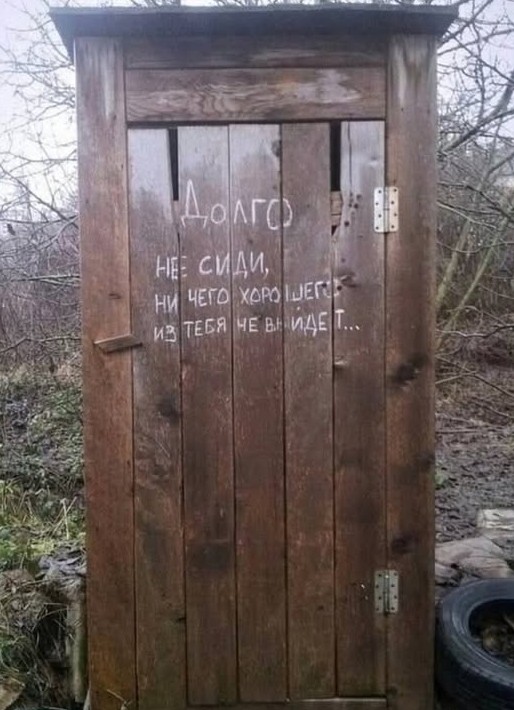 Долго
не сиди,
ничего хорошего
из тебя не выйдет...